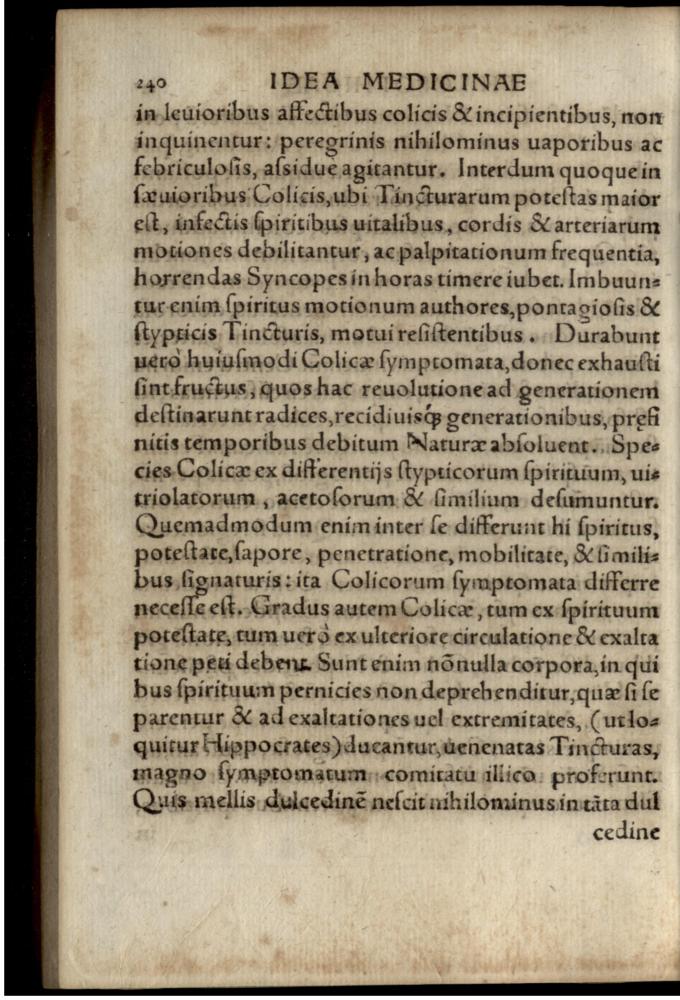 240 IDEA MEDICINAE
in leuioribus affectibus colicis & incipientibus, non
inquinentur: peregrinis nihilominus uaporibus ac
febriculosis, assidue agitantur. Interdum quoque in
sæuioribus Colicis, ubi Tincturarum potestas maior
est, infectis spiritibus uitalibus, cordis & arteriarum
motiones debilitantur, ac palpitationum frequentia,
horrendas Syncopes in horas timere iubet. Imbuun⸗
tur enim spiritus motionum authores, pontagiosis &
stypticis Tincturis, motui resistentibus. Durabunt
uerò huiusmodi Colicæ symptomata, donec exhausti
sint fructus, quos hac reuolutione ad generationem
destinarunt radices, recidiuisq́; generationibus, pręfi
nitis temporibus debitum Naturæ absoluent. Spe⸗
cies Colicæ ex differentijs stypticorum spirituum, ui⸗
triolatorum, acetosorum & similium desumuntur.
Quemadmodum enim inter se differunt hi spiritus,
potestate, sapore, penetratione, mobilitate, & simili⸗
bus signaturis: ita Colicorum symptomata differre
necesse est. Gradus autem Colicæ, tum ex spirituum
potestate, tum uerò ex ulteriore circulatione & exalta
tione peti debent. Sunt enim nōnulla corpora, in qui
bus spirituum pernicies non deprehenditur, quæ si se
parentur & ad exaltationes uel extremitates, (ut lo⸗
quitur Hippocrates) ducantur, uenenatas Tincturas,
magno symptomatum comitatu illico proferunt.
Quis mellis dulcedinē nescit nihilominus in tāta dul
cedine